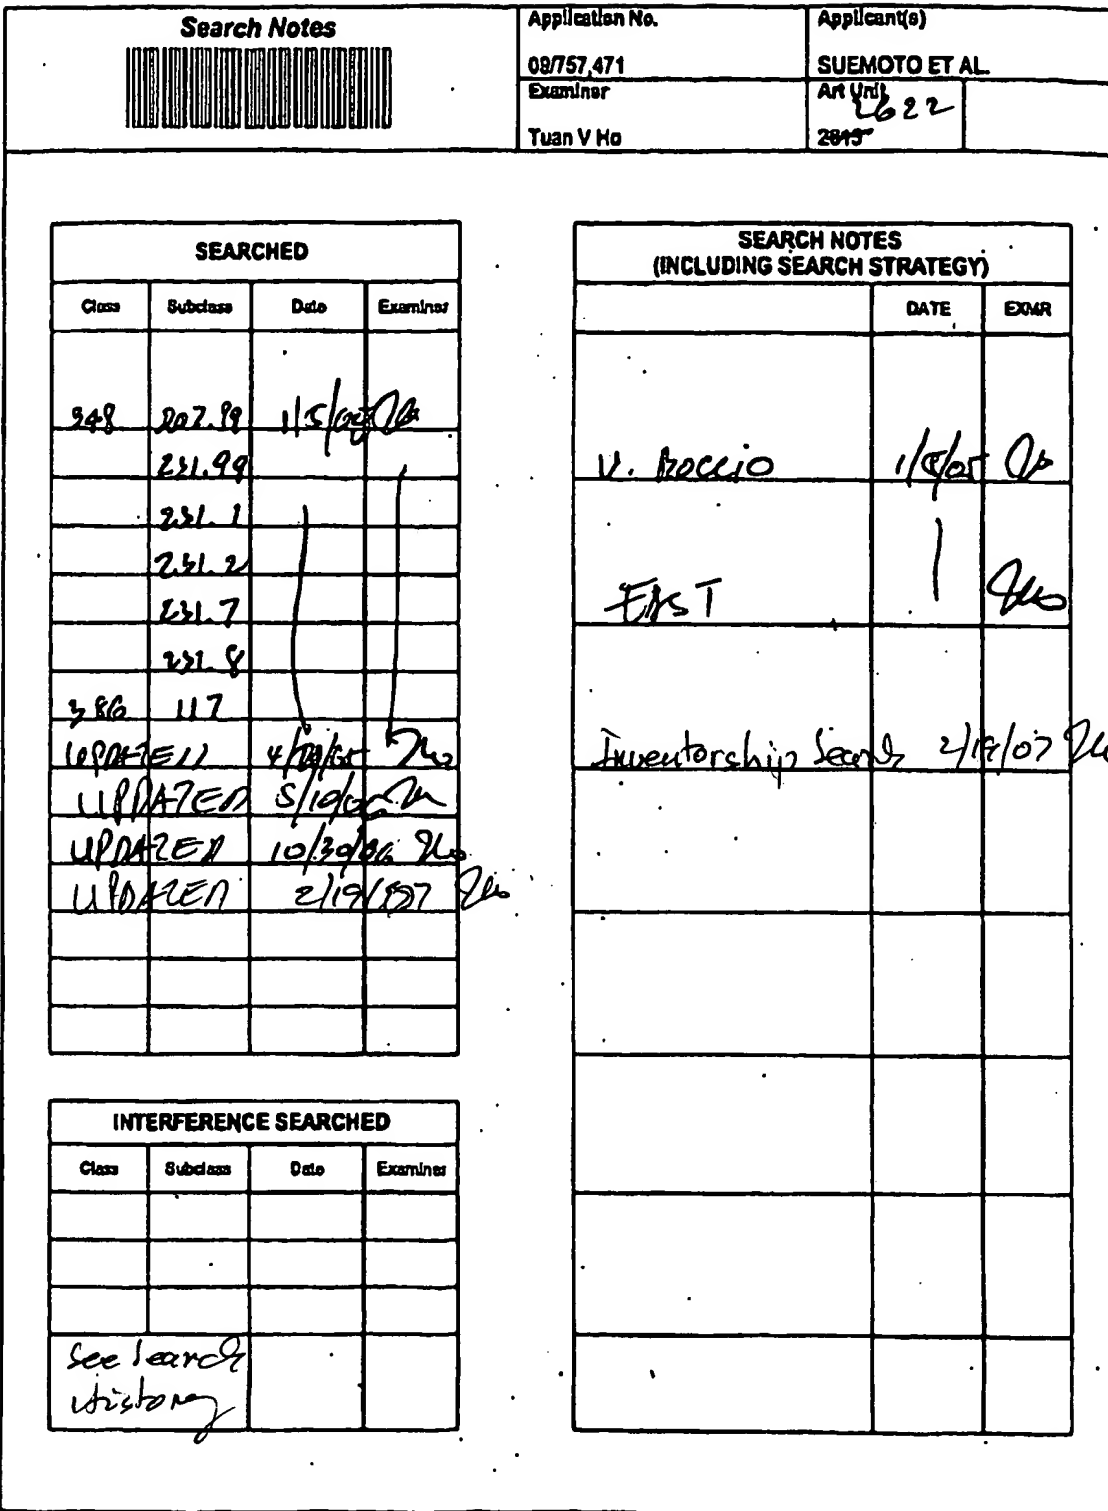 Search Notes
Application No.
Applicant(s)
09/757,471
SUEMOTO ET AL.
Examiner
Art Unit
2622
Tuan V Ho
2615
SEARCHED
Class Subclass Date Examiner
348 207.99 1/5/05
231.99
231.1
231.2
231.7
231.8
386 117
UPDATED
UPDATED 5/10/06
UPDATED 10/30/06
UPDATED 2/19/07
INTERFERENCE SEARCHED
Class Subclass Date Examiner
See Search
History
SEARCH NOTES
(INCLUDING SEARCH STRATEGY)
DATE EXMR
V. Boccio
EAST
Inventorship Search 2/19/07